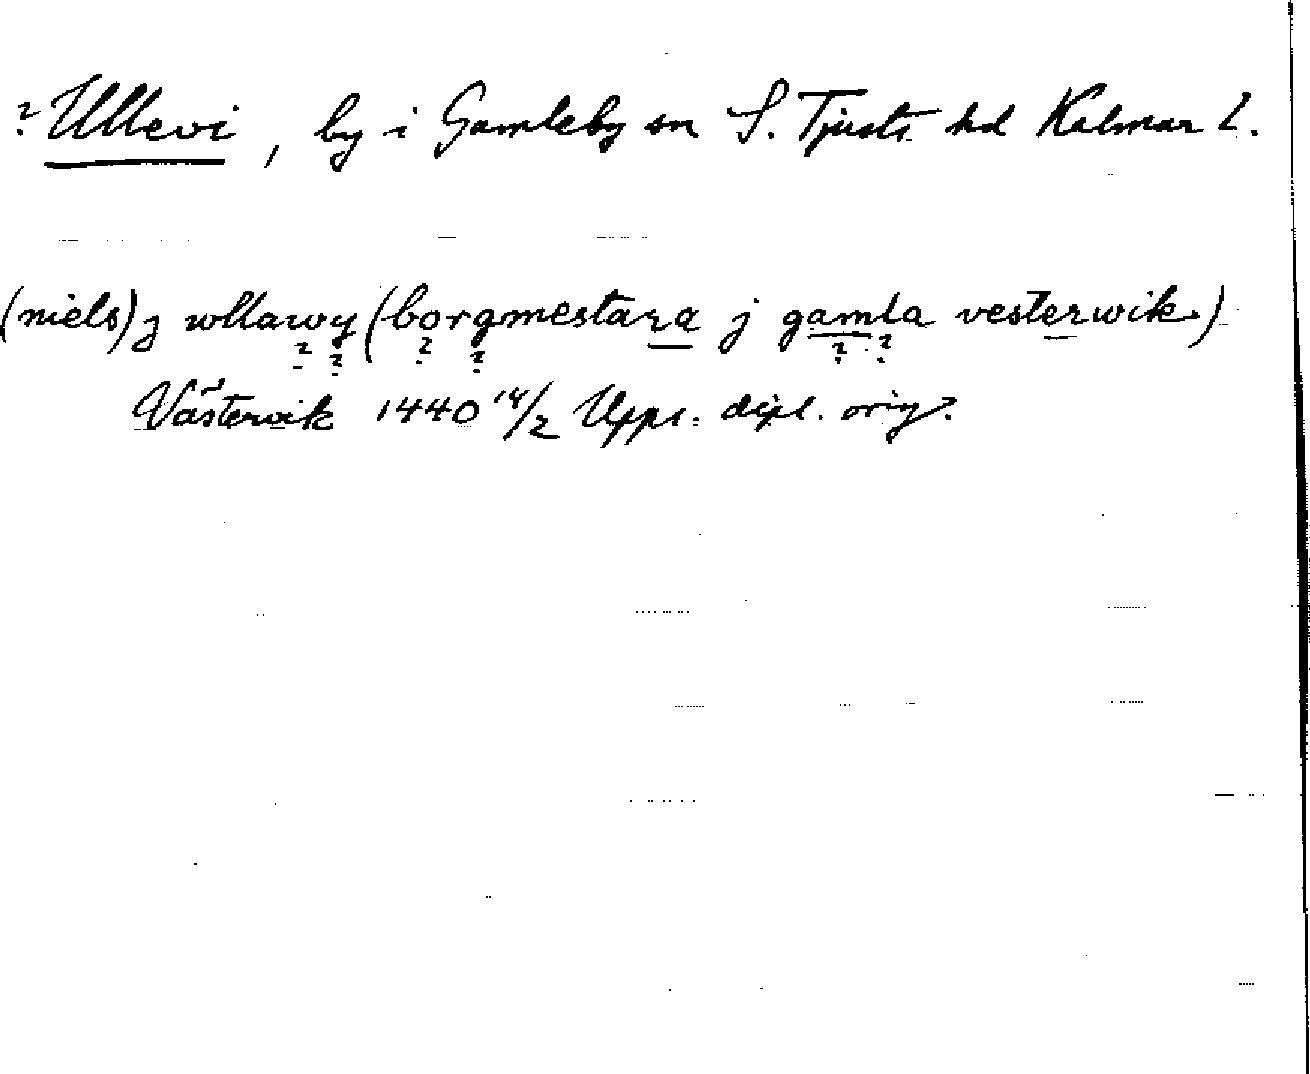 ? Ullevi, by i Gamleby sn S. Tjusts hd Kalmar l.
(niels) j wllawy (borgmestara j gamla vesterwik)
? ? ? ? ? ?
Västervik 1440 14/2 Upps. dipl. orig.